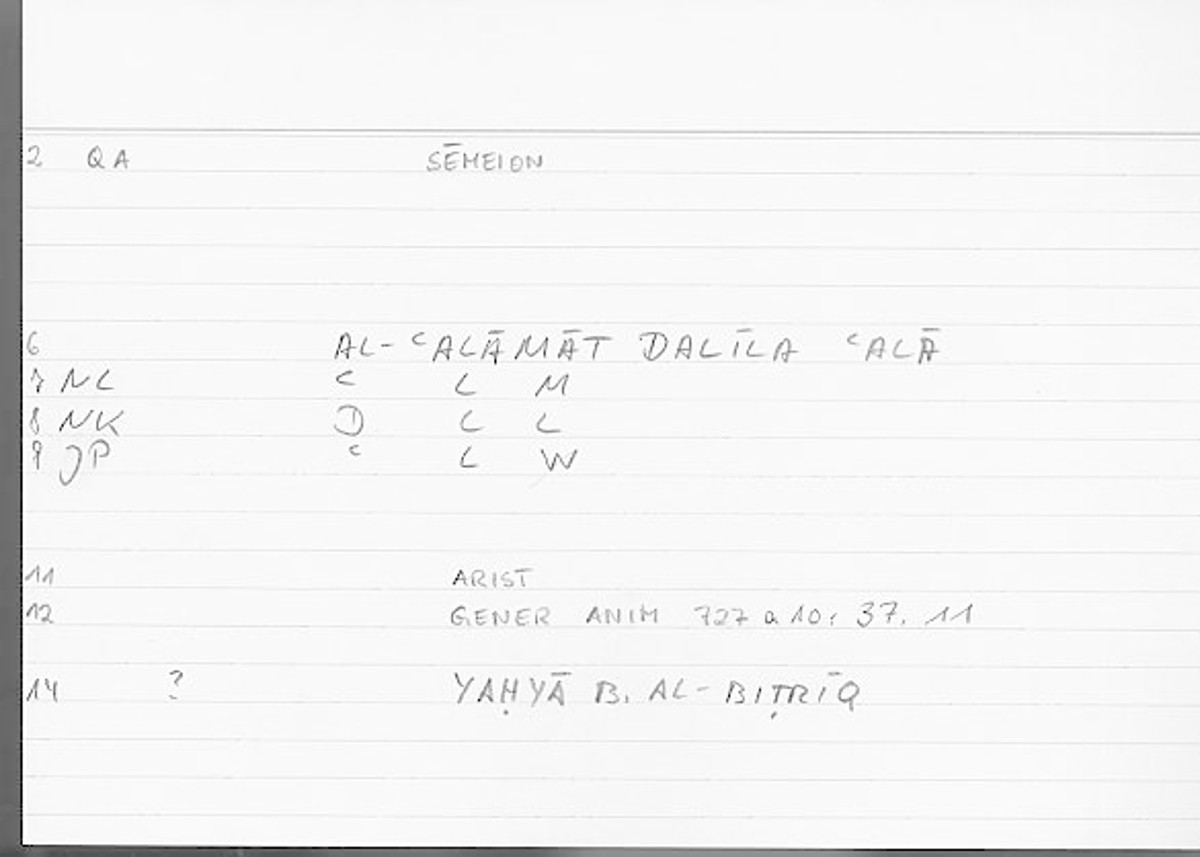 2 QA SĒMEION
6 AL-ᶜALĀMĀT DALĪLA ᶜALĀ
7 NL ᶜ L M
8 NK D L L
9 JP ᶜ L W
11 ARIST
12 GENER ANIM 727 a 10: 37. 11
14 ? YAḤYĀ B. AL-BIṬRĪQ